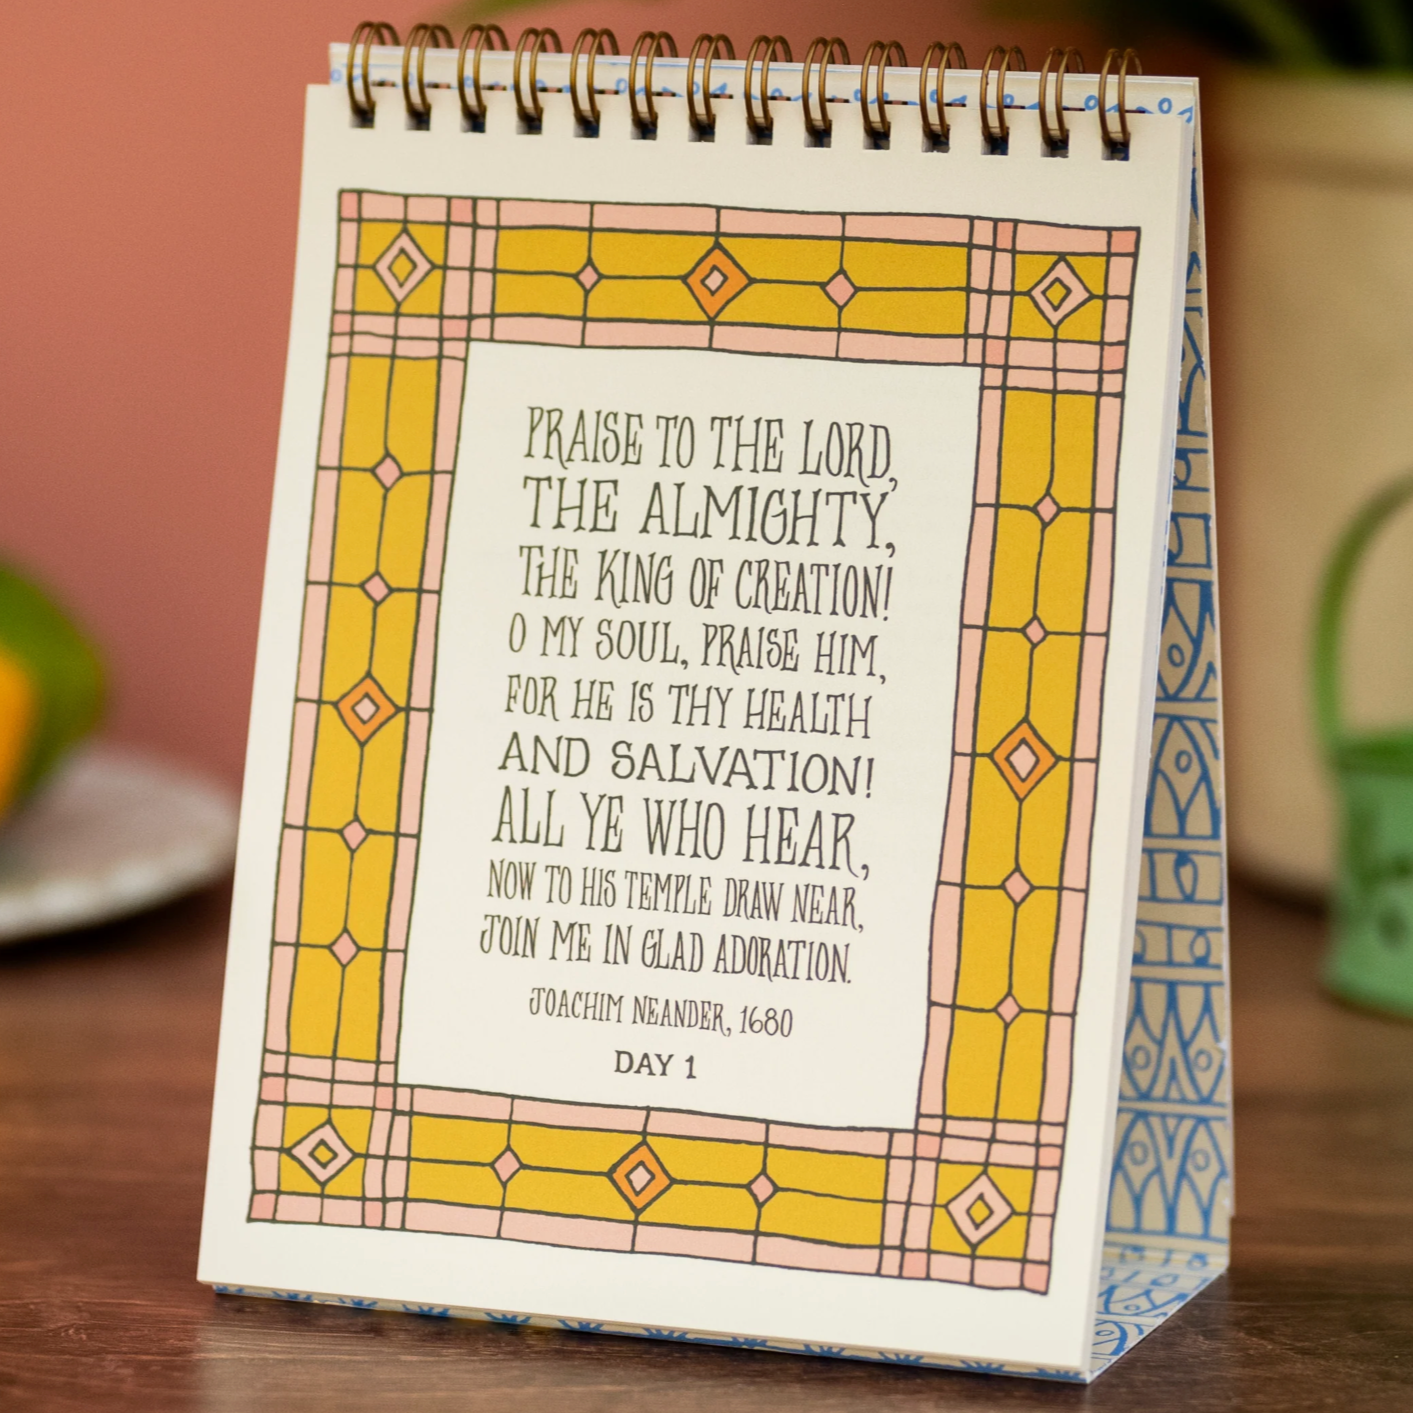 PRAISE TO THE LORD,
THE ALMIGHTY,
THE KING OF CREATION!
O MY SOUL, PRAISE HIM,
FOR HE IS THY HEALTH
AND SALVATION!
ALL YE WHO HEAR,
NOW TO HIS TEMPLE DRAW NEAR,
JOIN ME IN GLAD ADORATION.
JOACHIM NEANDER, 1680
DAY 1